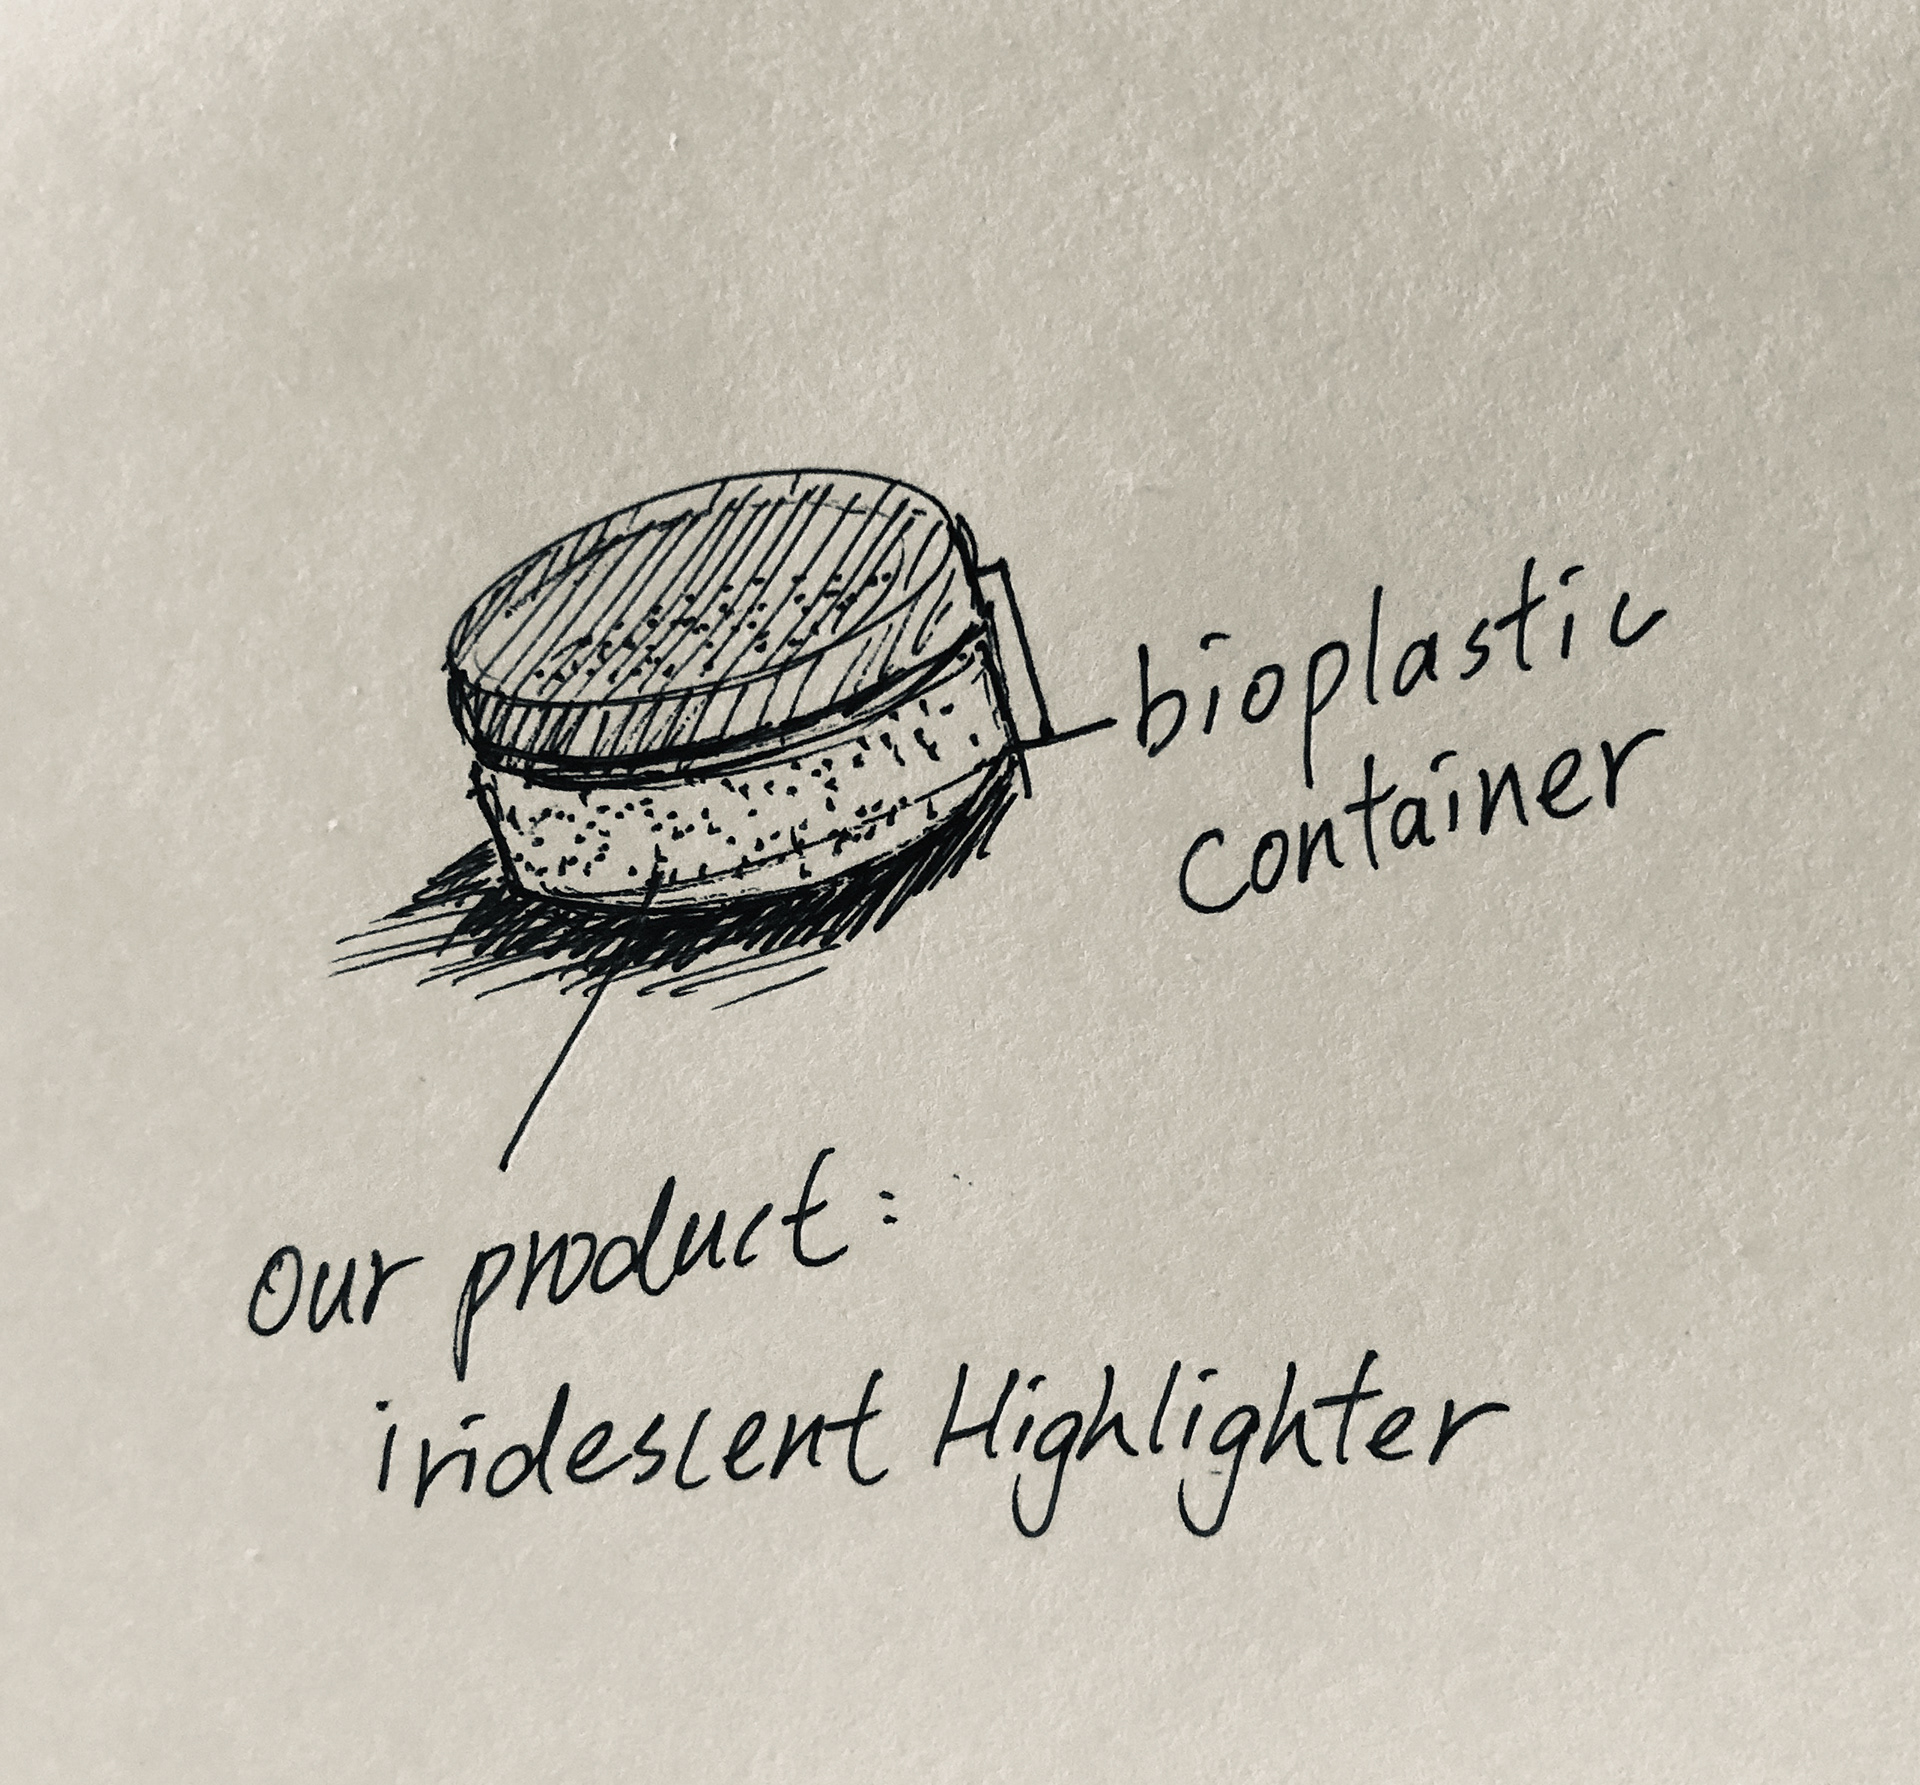 bioplastic
container
Our product:
iridescent Highlighter